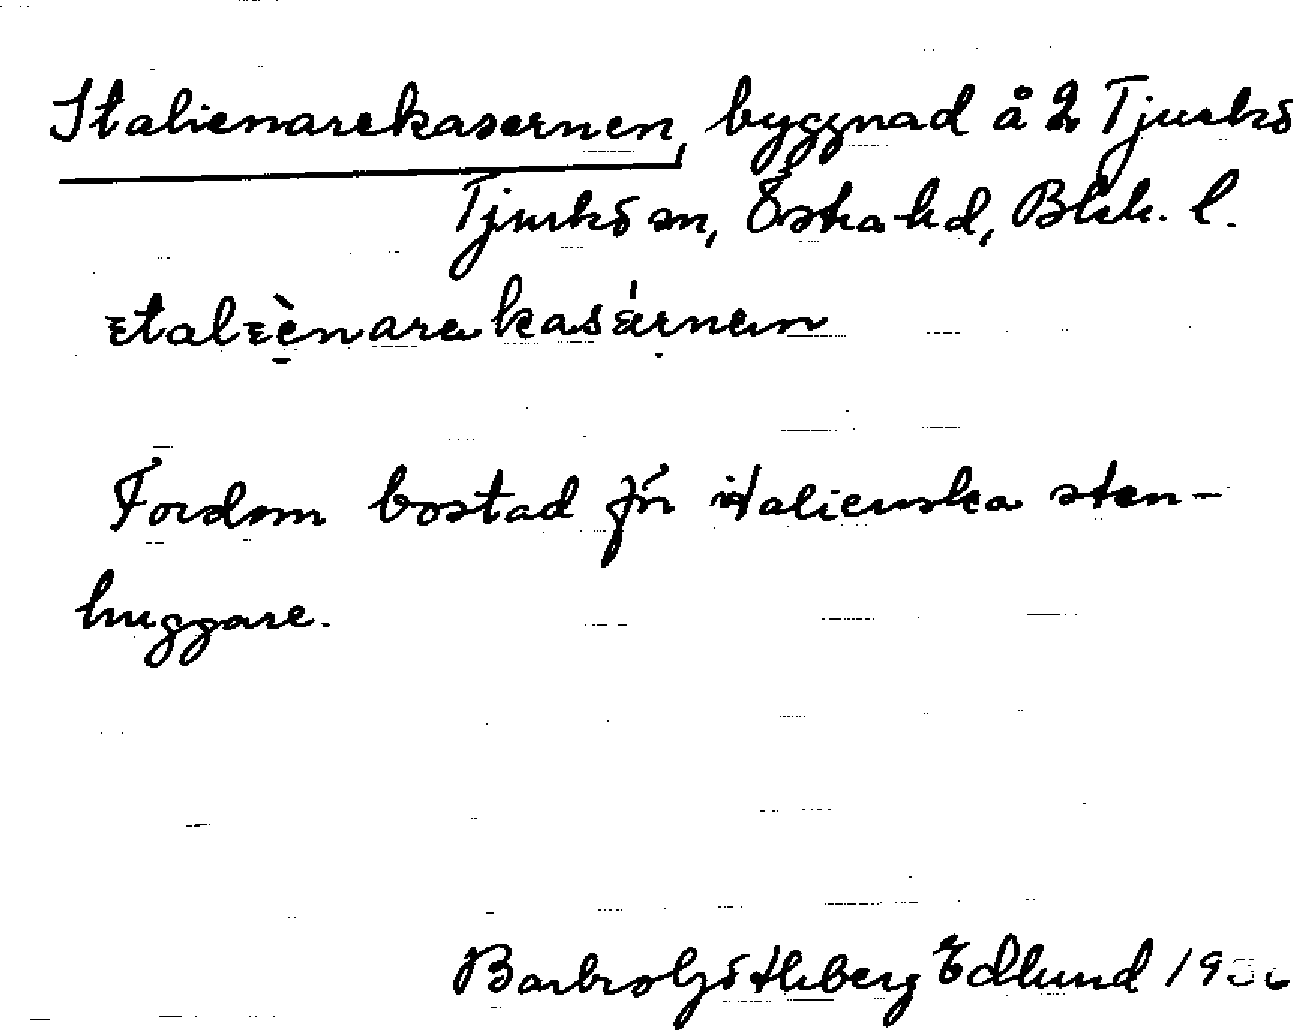 Italienarekasernen, byggnad å 2 Tjurkö
Tjurkö sn, Östra hd, Blek. l.
ɪtalɪènarekasǽrnen
Fordom bostad för italienska sten-
huggare.
Barbro Götheberg Edlund